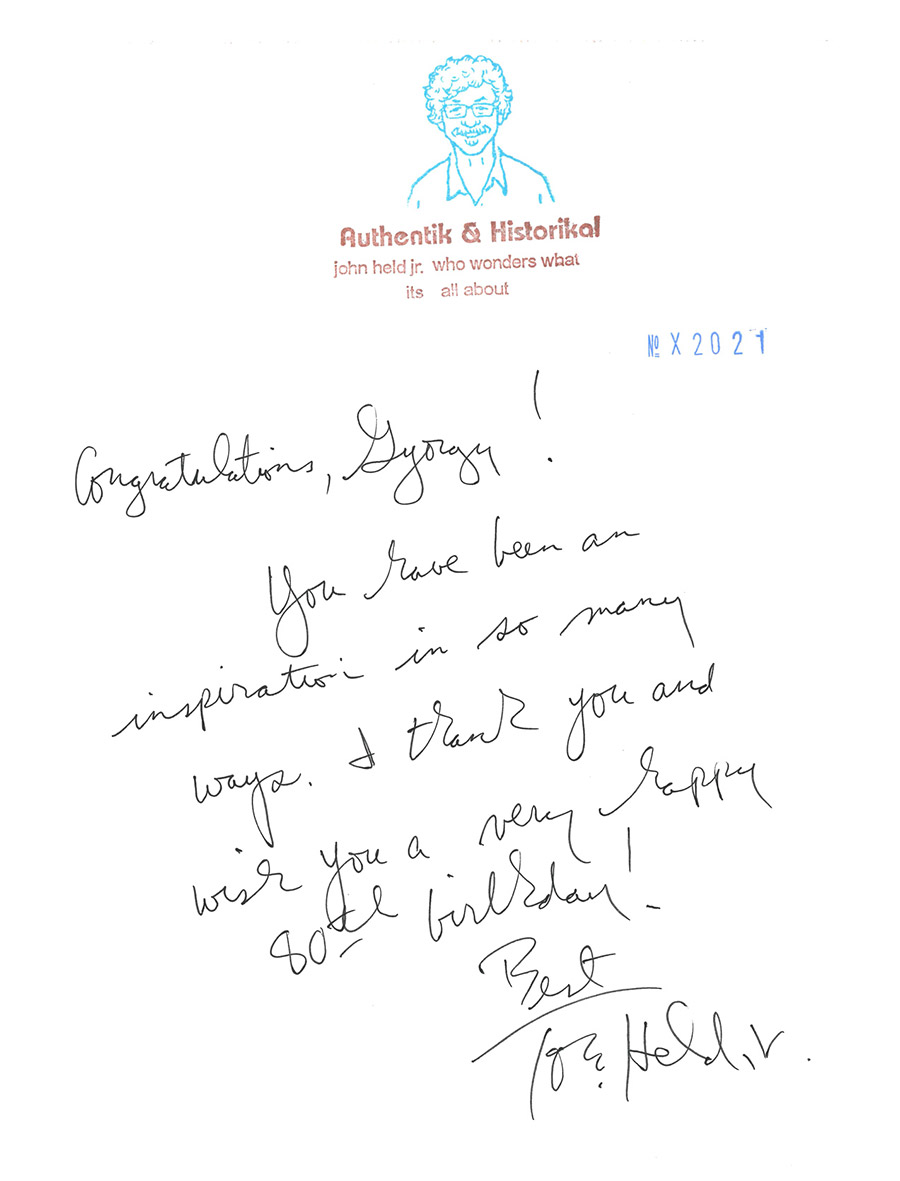 Authentik & Historikal
john held jr. who wonders what
its all about
№ X 2021
Congratulations, Gyorgy!
You have been an
inspiration in so many
ways. I thank you and
wish you a very happy
80th birthday!
Best
John Held, Jr.